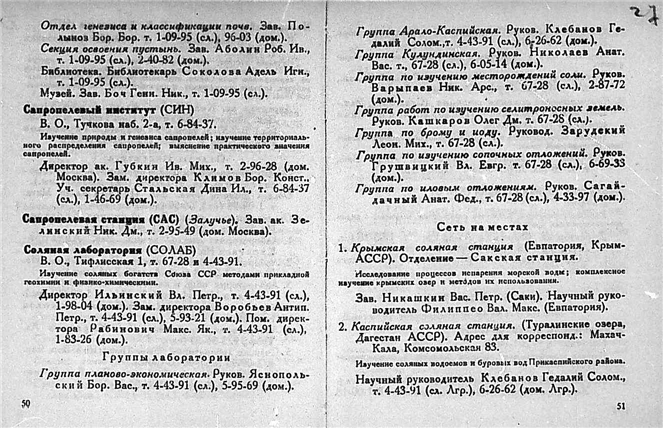 Отдел генезиса и классификации почв. Зав. По-
лынов Бор. Бор. т. 1-09-95 (сл.), 96-03 (дом.).
Секция освоения пустынь. Зав. Аболин Роб. Ив.,
т. 1-09-95 (сл.), 2-40-82 (дом.).
Библиотека. Библиотекарь Соколова Адель Игн.,
т. 1-09-95 (сл.).
Музей. Зав. Боч Генн. Ник., т. 1-09-95 (сл.).
Сапропелевый институт (СИН)
В. О., Тучкова наб. 2-а, т. 6-84-37.
Изучение природы и генезиса сапропелей; изучение территориаль-
ного распределения сапропелей; выяснение практического значения
сапропелей.
Директор ак. Губкин Ив. Мих., т. 2-96-28 (дом.
Москва). Зам. директора Климов Бор. Конст.,
Уч. секретарь Стальская Дина Ил., т. 6-84-37
(сл.), 1-46-69 (дом.).
Сапропелевая станция (САС) (Залучье). Зав. ак. Зе-
линский Ник. Дм., т. 2-95-49 (дом. Москва).
Соляная лаборатория (СОЛАБ)
В. О., Тифлисская 1, т. 67-28 и 4-43-91.
Изучение соляных богатств Союза ССР методами прикладной
геохимии и физико-химическими.
Директор Ильинский Вл. Петр., т. 4-43-91 (сл.),
1-98-04 (дом.). Зам. директора Воробьев Антип.
Петр., т. 4-43-91 (сл.), 5-93-21 (дом.). Пом. дирек-
тора Рабинович Макс. Як., т. 4-43-91 (сл.),
1-83-26 (дом.).
Группы лаборатории
Группа планово-экономическая. Руков. Яснополь-
ский Бор. Вас., т. 4-43-91 (сл.), 5-95-69 (дом.).
50
27
Группа Арало-Каспийская. Руков. Клебанов Ге-
далий Солом., т. 4-43-91 (сл.), 6-26-62 (дом.).
Группа Кулундинская. Руков. Николаев Анат.
Вас. т., 67-28 (сл.), 6-05-14 (дом.).
Группа по изучению месторождений соли. Руков.
Варыпаев Ник. Арс., т. 67-28 (сл.), 2-87-72
(дом.).
Группа работ по изучению селитроносных земель.
Руков. Кашкаров Олег Дм. т. 67-28 (сл.).
Группа по брому и иоду. Руковод. Зарудский
Леон. Мих., т. 67-28 (сл.).
Группа по изучению сопочных отложений. Руков.
Грушвицкий Вл. Евгр. т. 67-28 (сл.), 6-69-33
(дом.).
Группа по иловым отложениям. Руков. Сагай-
дачный Анат. Фед., т. 67-28 (сл.), 4-33-97 (дом.).
Сеть на местах
1. Крымская соляная станция (Евпатория, Крым-
АССР). Отделение — Сакская станция.
Исследование процессов испарения морской воды; комплексное
изучение крымских озер и методов их использования.
Зав. Никашкин Вас. Петр. (Саки). Научный руко-
водитель Филиппео Вал. Макс. (Евпатория).
2. Каспийская соляная станция. (Туралинские озера,
Дагестан АССР). Адрес для корреспонд.: Махач-
Кала, Комсомольская 83.
Изучение соляных водоемов и буровых вод Прикаспийского района.
Научный руководитель Клебанов Гедалий Солом.,
т. 4-43-91 (сл. Лгр.), 6-26-62 (дом. Лгр.).
51